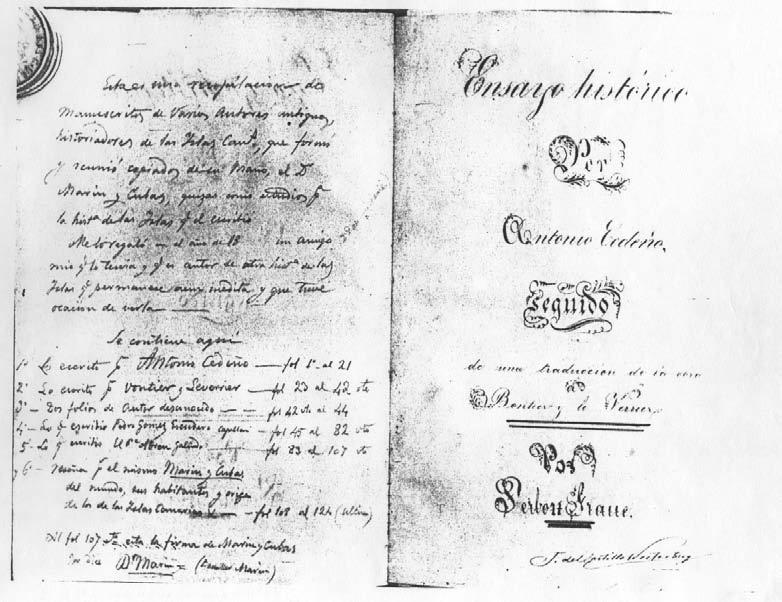 Esta es una recopilacion de
Manuscritos de Varios Autores antiguos,
historiadores de las Islas Canas, que formó
y reunió copiados de su Mano, el Dr
Marin y Cubas, quizas como estudios pa
la hista de las Islas qe el escribió
Me lo regaló en el año de 18 un amigo
mio qe lo tenia y qe es autor de otra hista de las
Islas qe permanece aun inedita y que tuve
ocacion de verla
Se contiene aqui
1º Lo escrito pr Antonio Cedeño — fol 1º al 21
2º Lo escrito pr Vontier y Leverrier — fol 23 al 42 vto
3º — Dos folios de autor desconocido — fol 42 vto al 44
4 — Lo qe escribio Pedro Gomez Escudero capellan — fol 45 al 82 vto
5 — Lo qe escribio el Pe Abreu Galindo — fol 83 al 107 vto
y 6 — reseña pr el mismo Marin y Cubas
del mundo, sus habitantes y origen
de los de las Islas Canarias — fol 108 al 124 (ultimo)
Del fol 107 vto esta la firma de Marin y Cubas
Dr Marin = (Marin)
Ensayo histórico
Por
Antonio Cedeño,
Seguido
de una traduccion de la obra
de
Bontier y le Verrier
Por
Servan Grave.